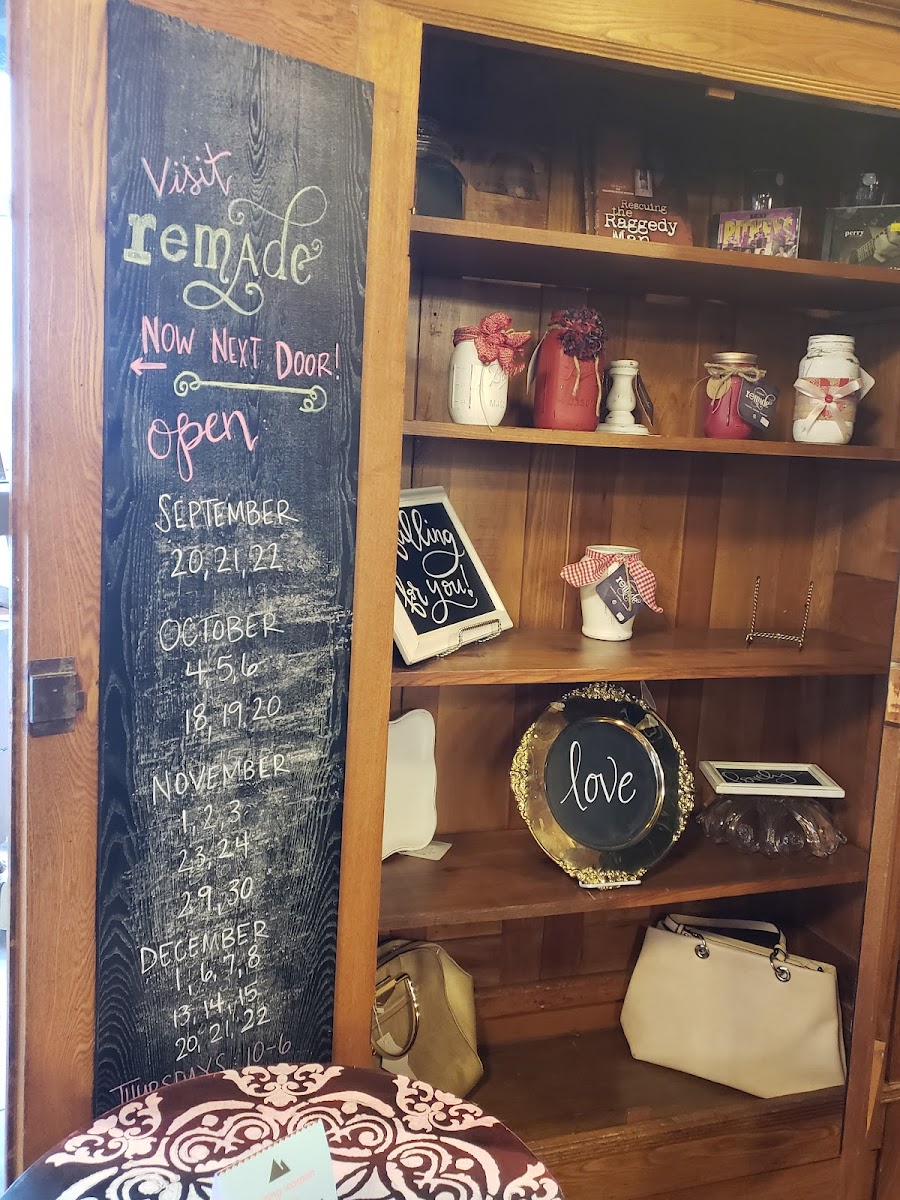 Visit
remade
NOW NEXT DOOR!
open
SEPTEMBER
20, 21, 22
OCTOBER
4, 5, 6
18, 19, 20
NOVEMBER
1, 2, 3
23, 24
29, 30
DECEMBER
1, 6, 7, 8
13, 14, 15
20, 21, 22
THURSDAYS: 10-6
Rescuing
the
Raggedy
Man
perry
remade
falling
for you!
remade
love
lovely